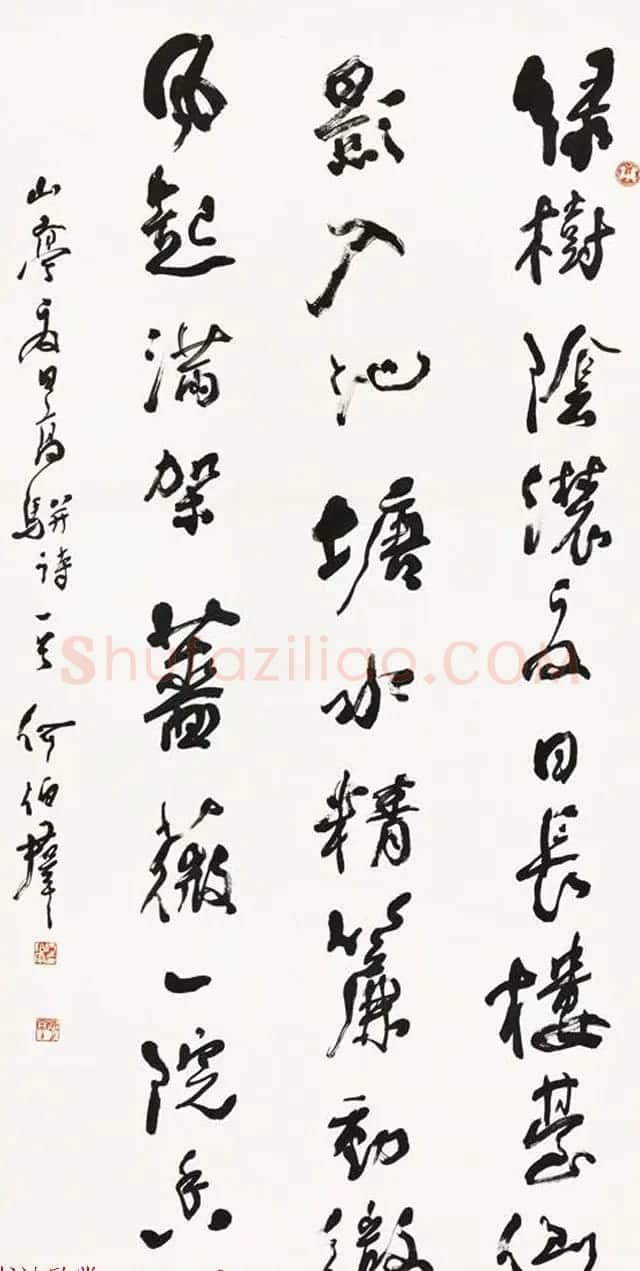 綠樹陰濃夏日長樓臺倒
影入池塘水精簾動微
風起滿架薔薇一院香
山亭夏日高駢詩一首 何伯羣
Shufaziliao.COM